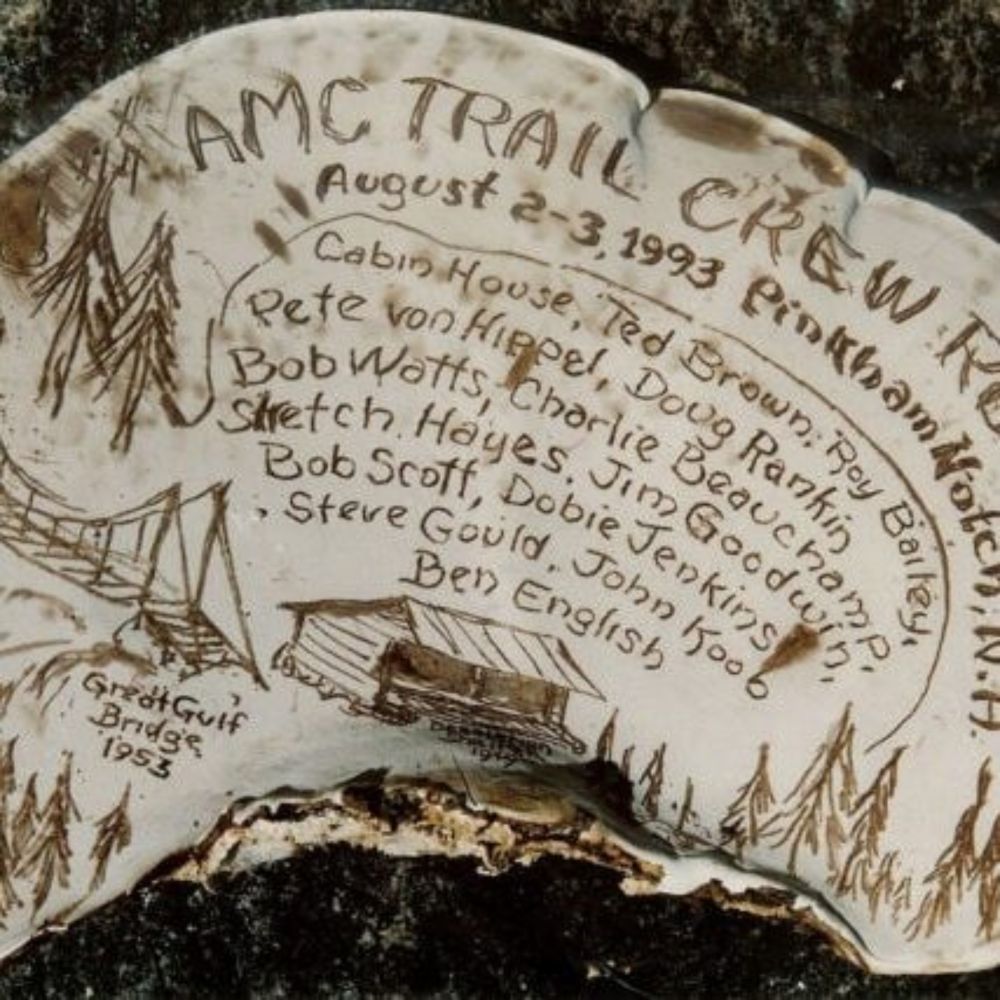 AMC TRAIL CREW RE
August 2-3, 1993 Pinkham Notch, N.H.
Cabin House, Ted Brown, Roy Bailey,
Pete von Hippel, Doug Rankin
Bob Watts, Charlie Beauchamp,
Stretch Hayes, Jim Goodwin,
Bob Scott, Dobie Jenkins
Steve Gould, John Koob
Ben English
Great Gulf
Bridge
1953